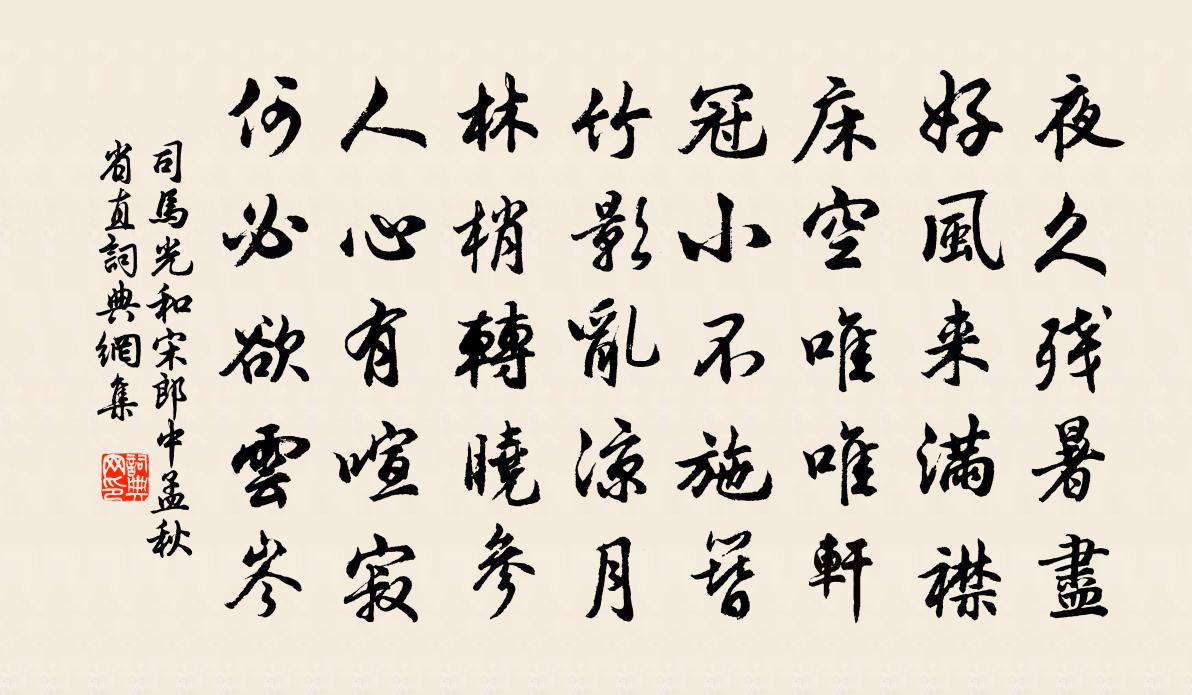 夜久残暑盡
好風来滿襟
床空唯唯軒
冠小不施簪
竹影亂涼月
林梢轉曉參
人心有喧寂
何必欲雲岑
司馬光和宋郎中孟秋
省直詞典網集
詞典
网印